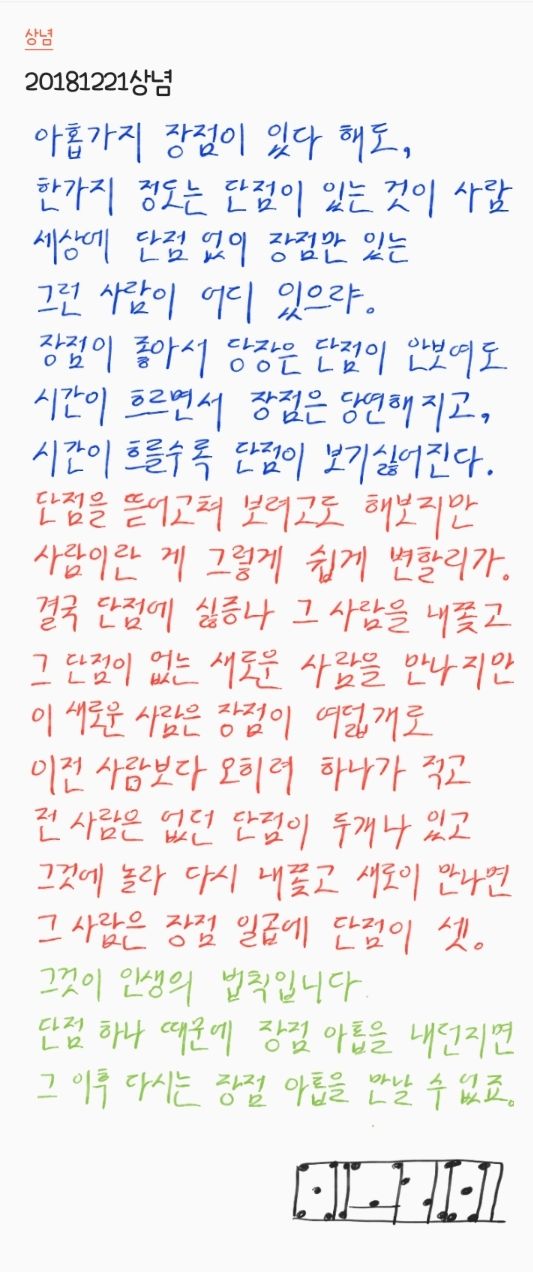 상념
20181221상념
아홉가지 장점이 있다 해도,
한가지 정도는 단점이 있는 것이 사람
세상에 단점 없이 장점만 있는
그런 사람이 어디 있으랴.
장점이 좋아서 당장은 단점이 안보여도
시간이 흐르면서 장점은 당연해지고,
시간이 흐를수록 단점이 보기싫어진다.
단점을 뜯어고쳐 보려고도 해보지만
사람이란 게 그렇게 쉽게 변할리가.
결국 단점에 싫증나 그 사람을 내쫓고
그 단점이 없는 새로운 사람을 만나지만
이 새로운 사람은 장점이 여덟개로
이전 사람보다 오히려 하나가 적고
전 사람은 없던 단점이 두개나 있고
그것에 놀라 다시 내쫓고 새로이 만나면
그 사람은 장점 일곱에 단점이 셋.
그것이 인생의 법칙입니다.
단점 하나 때문에 장점 아홉을 내던지면
그 이후 다시는 장점 아홉을 만날 수 없죠.